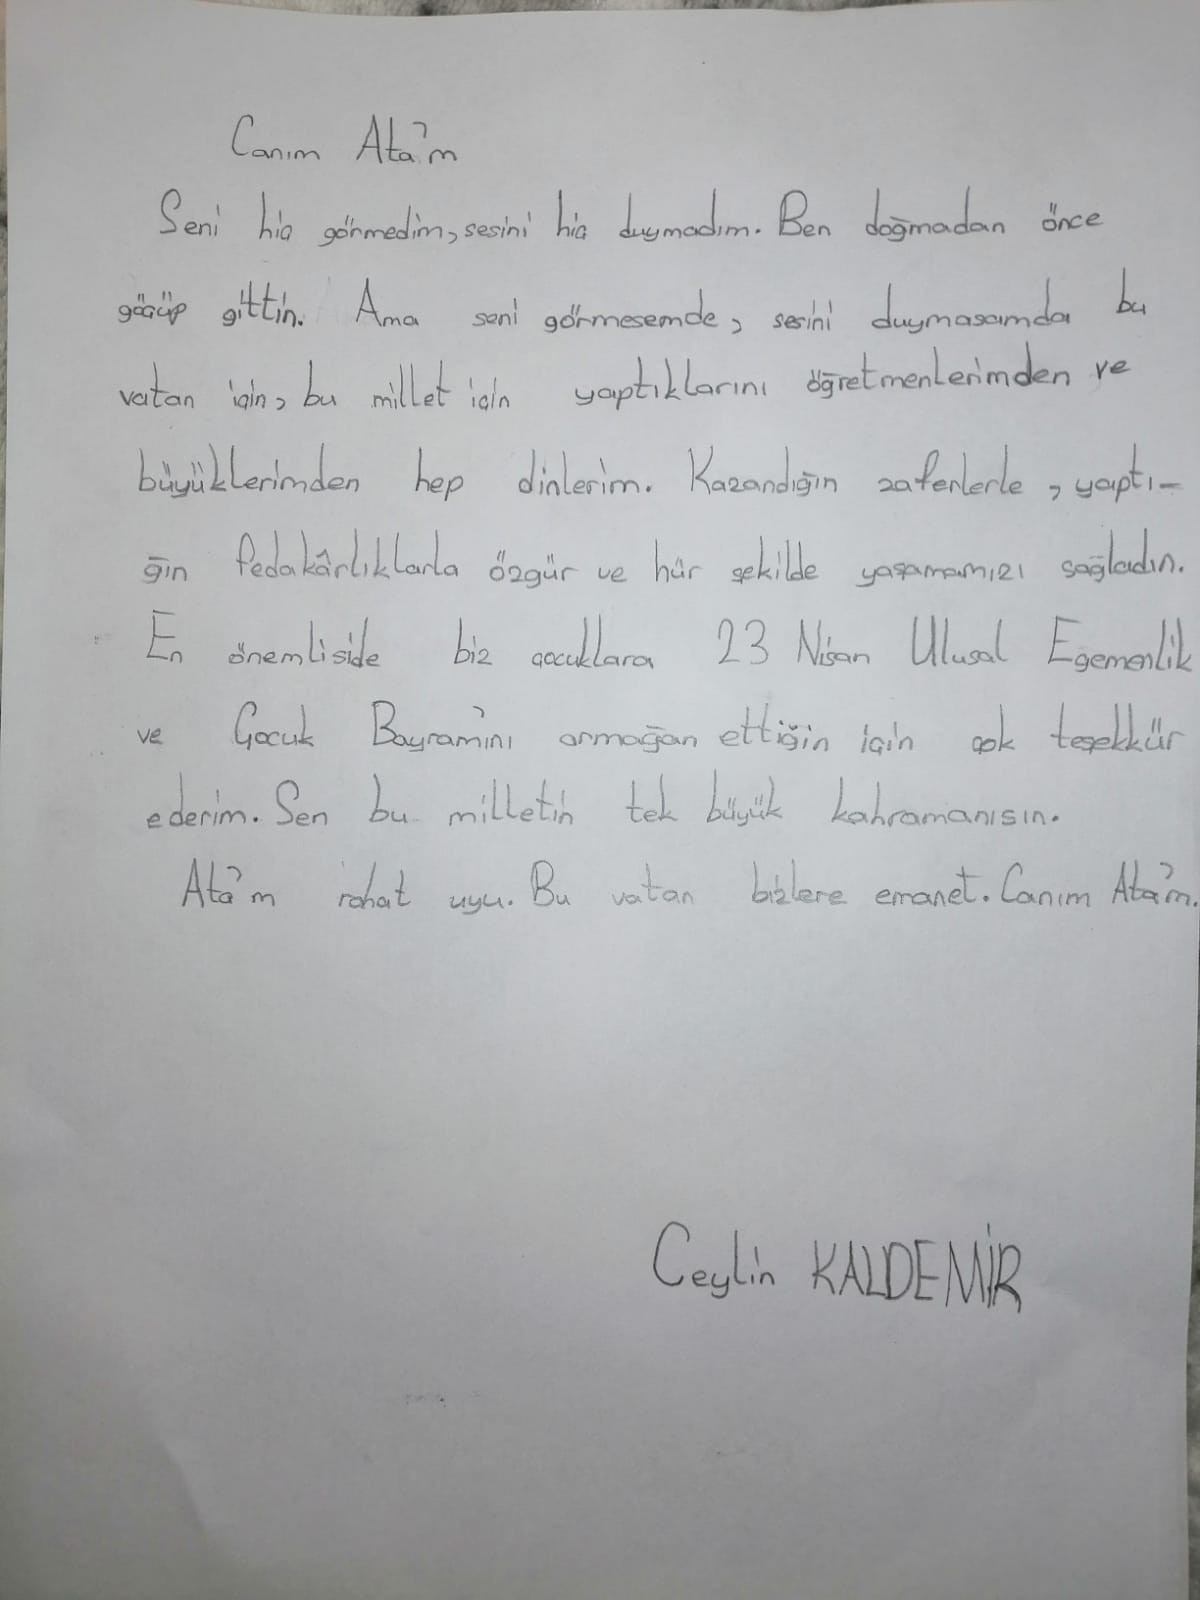 Canım Ata'm
Seni hiç görmedim, sesini hiç duymadım. Ben doğmadan önce
göçüp gittin. Ama seni görmesemde, sesini duymasamda bu
vatan için, bu millet için yaptıklarını öğretmenlerimden ve
büyüklerimden hep dinlerim. Kazandığın zaferlerle, yaptı-
ğın fedakârlıklarla özgür ve hür şekilde yaşamamızı sağladın.
En önemliside biz çocuklara 23 Nisan Ulusal Egemenlik
ve Çocuk Bayramı'nı armağan ettiğin için çok teşekkür
ederim. Sen bu milletin tek büyük kahramanısın.
Ata'm rahat uyu. Bu vatan bizlere emanet. Canım Ata'm.
Ceylin KALDEMİR